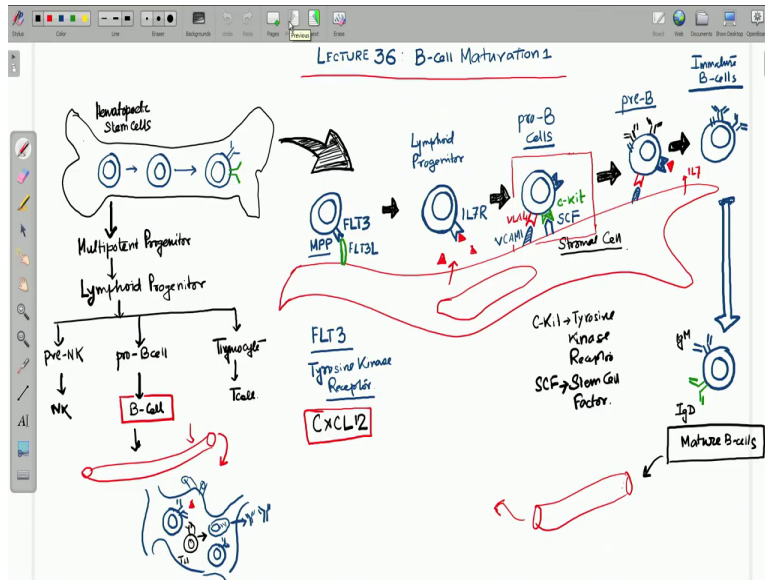 Stylus
Color
Line
Eraser
Backgrounds
Undo
Redo
Pages
Previous
Next
Erase
Board
Web
Documents
Show Desktop
OpenBoard
LECTURE 36: B-cell Maturation 1
Hematopoetic
Stem Cells
Multipotent Progenitor
Lymphoid Progenitor
pre-NK
pro-Bcell
Thymocyte
NK
B-Cell
Tcell
TH
MPP
FLT3
FLT3L
Lymphoid
Progenitor
IL7R
pro-B
Cells
VLA4
C-Kit
SCF
VCAM1
Stromal Cell
pre-B
IL7
Immature
B-cells
FLT3
Tyrosine Kinase
Receptor
CXCL12
C-Kit → Tyrosine
Kinase
Receptor
SCF → Stem Cell
Factor.
IgM
IgD
Mature B-cells